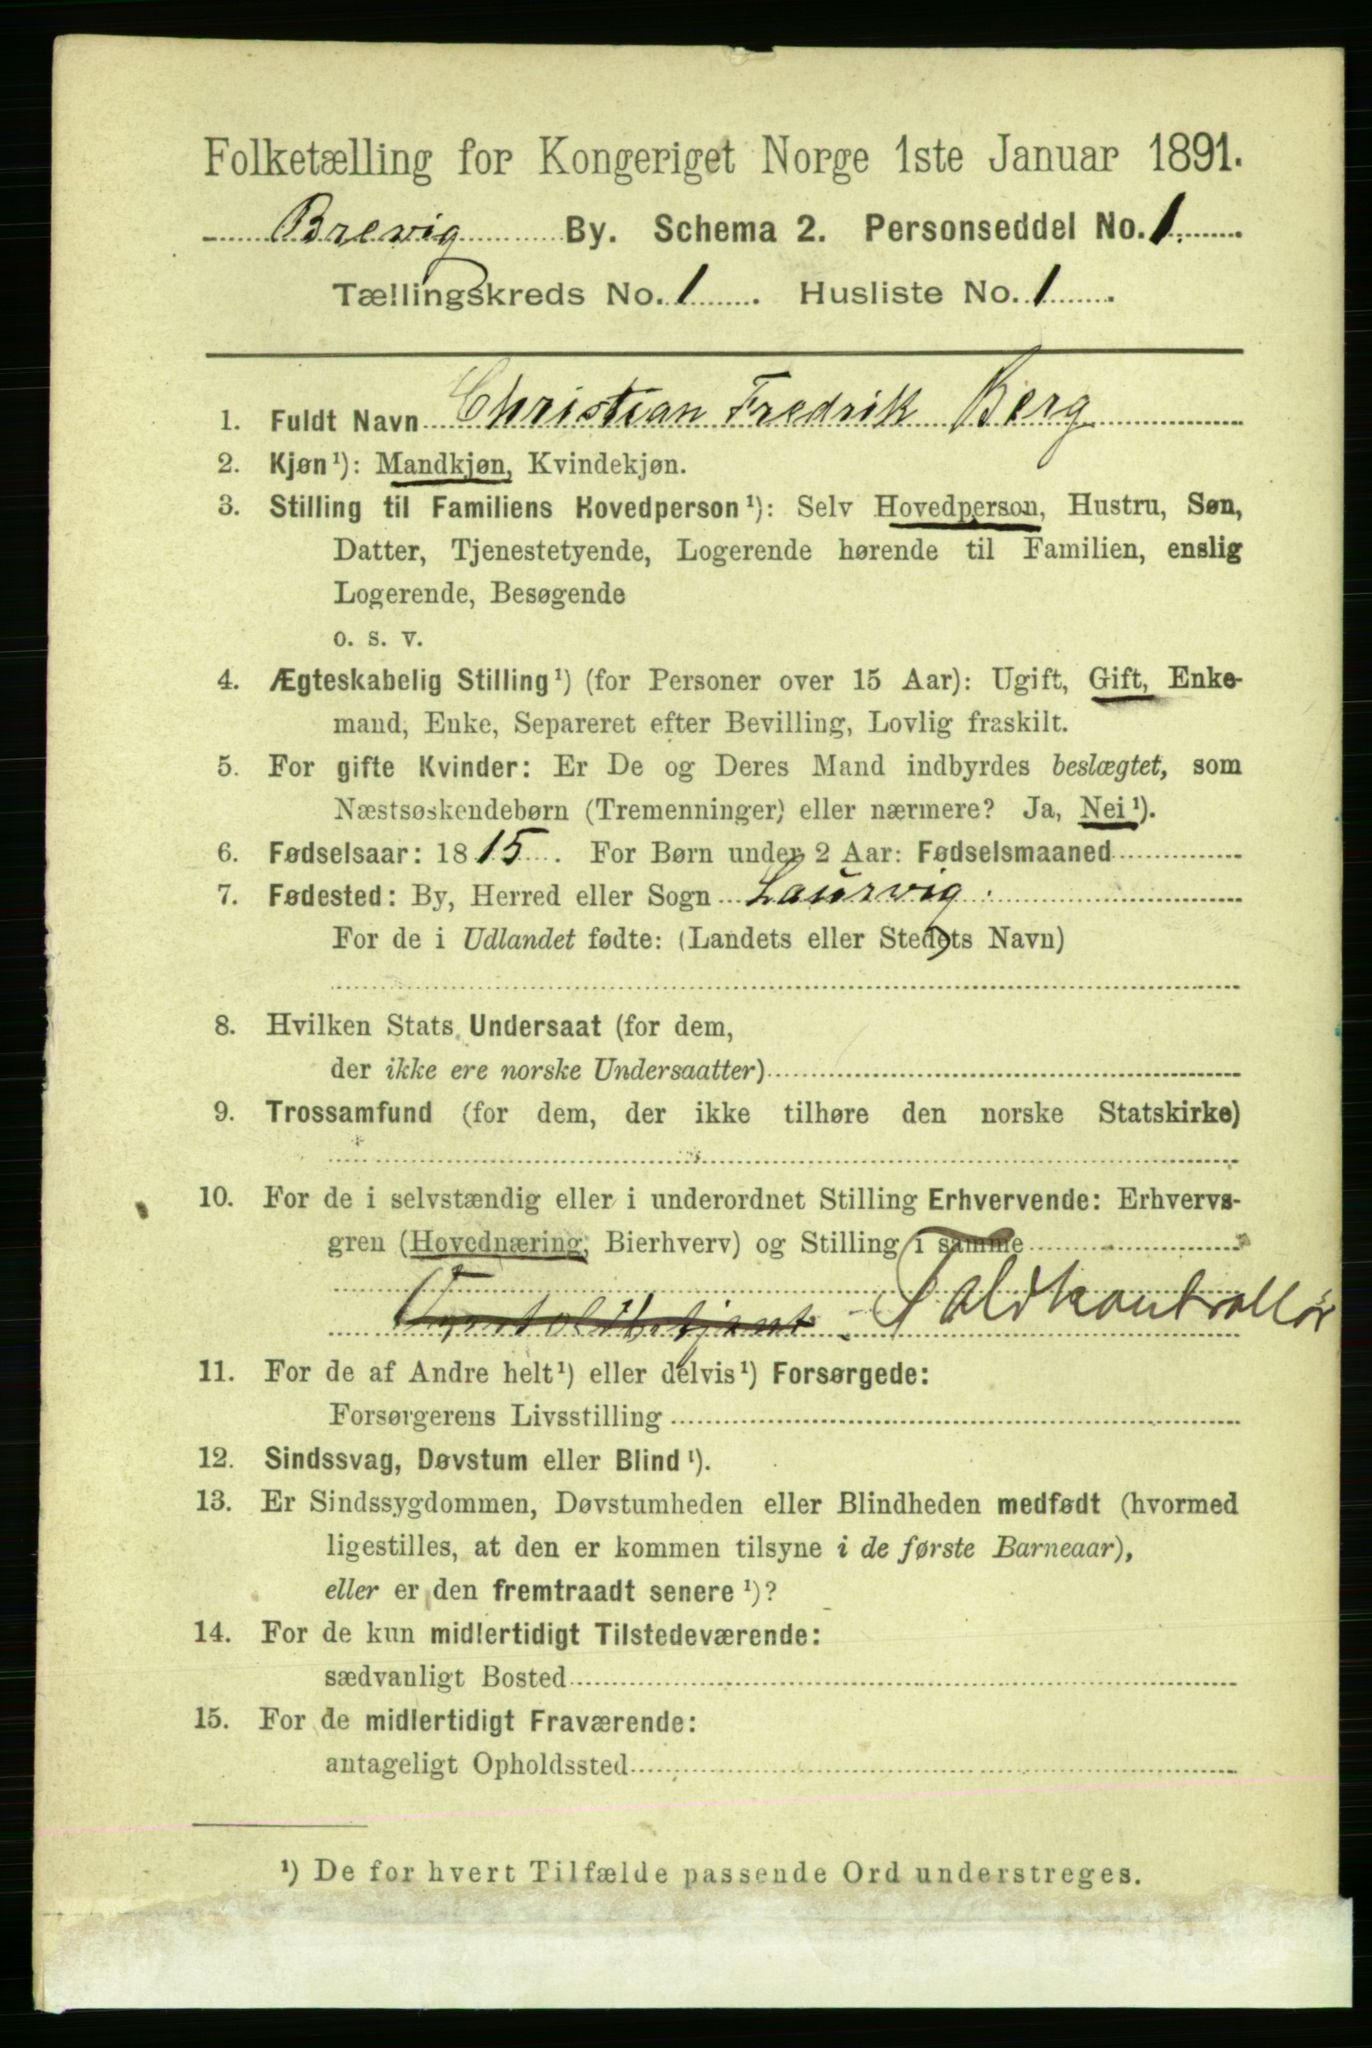 Folketælling for Kongeriget Norge 1ste Januar 1891.
Brevig By. Schema 2. Personseddel No. 1.
Tællingskreds No. 1. Husliste No. 1.
1. Fuldt Navn Christian Fredrik Berg
2. Kjøn¹): Mandkjøn, Kvindekjøn.
3. Stilling til Familiens Hovedperson¹): Selv Hovedperson, Hustru, Søn,
Datter, Tjenestetyende, Logerende hørende til Familien, enslig
Logerende, Besøgende
o. s. v.
4. Ægteskabelig Stilling¹) (for Personer over 15 Aar): Ugift, Gift, Enke-
mand, Enke, Separeret efter Bevilling, Lovlig fraskilt.
5. For gifte Kvinder: Er De og Deres Mand indbyrdes beslægtet, som
Næstsøskendebørn (Tremenninger) eller nærmere? Ja, Nei¹).
6. Fødselsaar: 1815. For Børn under 2 Aar: Fødselsmaaned
7. Fødested: By, Herred eller Sogn Laurvig.
For de i Udlandet fødte: (Landets eller Stedets Navn)
8. Hvilken Stats Undersaat (for dem,
der ikke ere norske Undersaatter)
9. Trossamfund (for dem, der ikke tilhøre den norske Statskirke)
10. For de i selvstændig eller i underordnet Stilling Erhvervende: Erhvervs-
gren (Hovednæring, Bierhverv) og Stilling i samme
Toldkontrollør
11. For de af Andre helt¹) eller delvis¹) Forsørgede:
Forsørgerens Livsstilling
12. Sindssvag, Døvstum eller Blind¹).
13. Er Sindssygdommen, Døvstumheden eller Blindheden medfødt (hvormed
ligestilles, at den er kommen tilsyne i de første Barneaar),
eller er den fremtraadt senere¹)?
14. For de kun midlertidigt Tilstedeværende:
sædvanligt Bosted
15. For de midlertidigt Fraværende:
antageligt Opholdssted
¹) De for hvert Tilfælde passende Ord understreges.